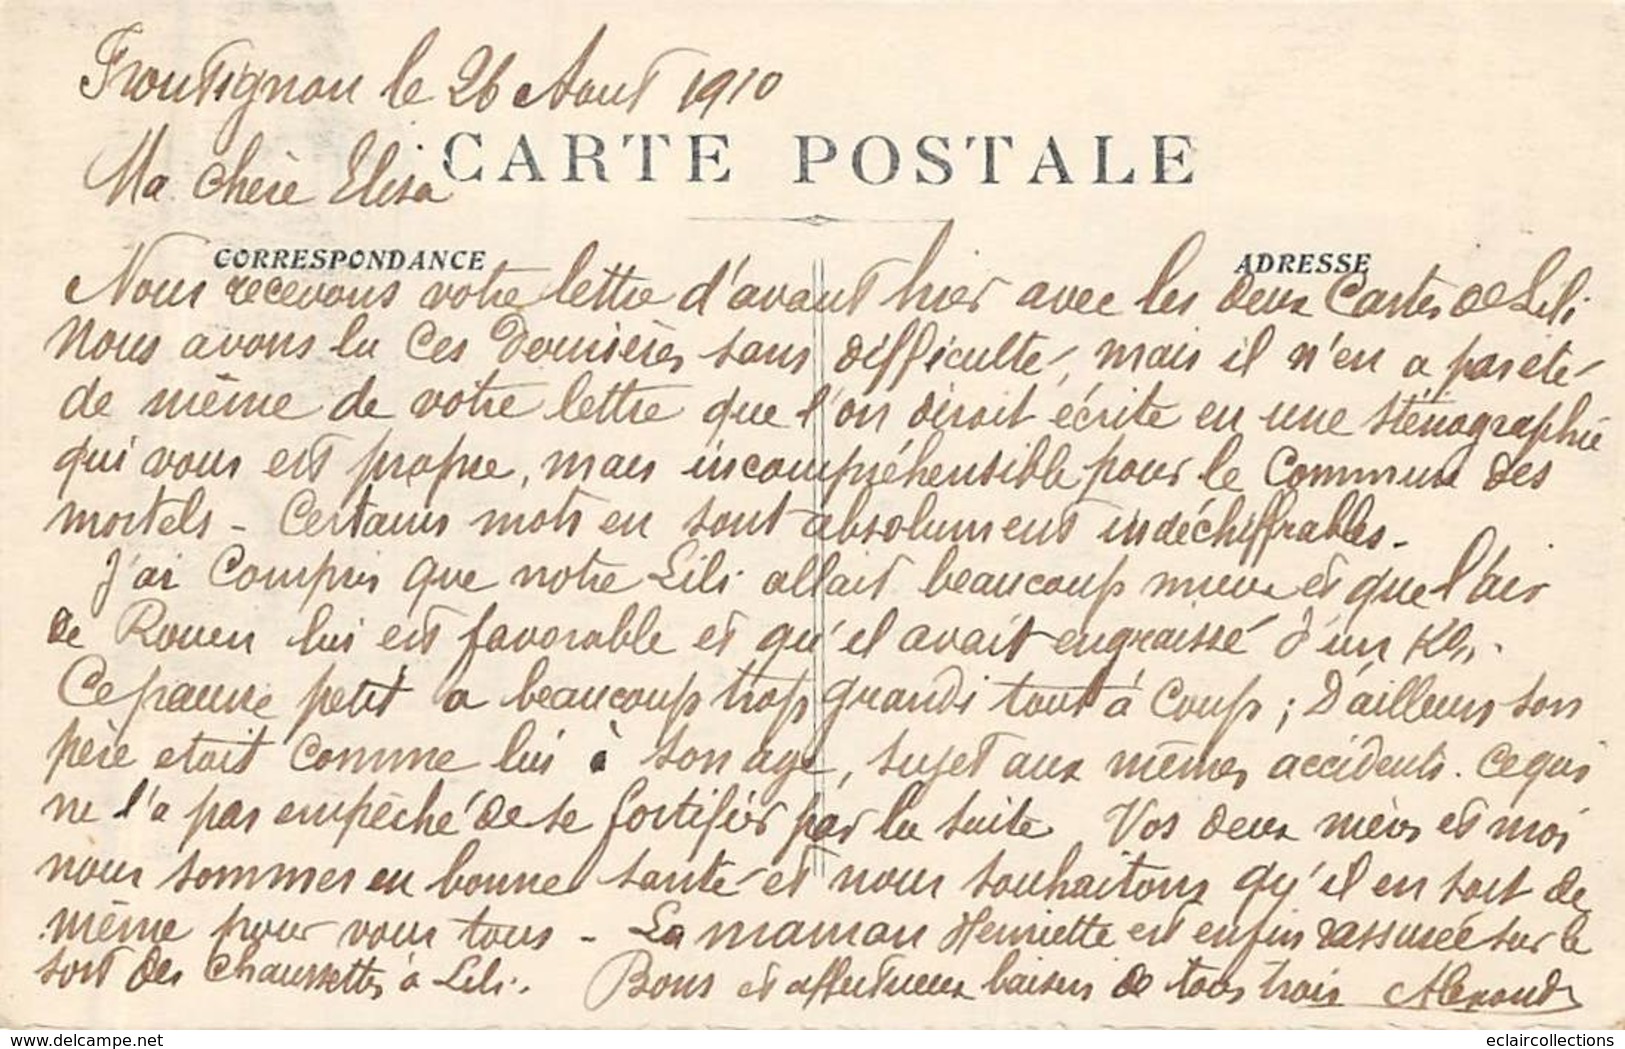 Frontignan le 26 Aout 1910
CARTE POSTALE
Ma chère Elisa
CORRESPONDANCE
ADRESSE
Nous recevons votre lettre d'avant hier avec les deux Cartes de Lili
Nous avons lu ces Dernières sans difficulté, mais il n'en a pas été
de même de votre lettre que l'on diroit écrite en une sténographie
qui vous est propre, mais incompréhensible pour le Commun des
mortels - Certains mots en sont absolument indéchiffrables -
J'ai Compris que notre Lili allait beaucoup mieux et que l'air
de Rouen lui est favorable et qu'il avait engraissé d'un Klg.
Ce pauvre petit a beaucoup trop grandi tout à Coup ; D'ailleurs son
père etait comme lui à son age, sujet aux mêmes accidents. ce qui
ne l'a pas empêché de se fortifier par la suite Vos deux mères et moi
nous sommes en bonne santé et nous souhaitons qu'il en soit de
même pour vous tous - La maman Henriette est enfin rassurée sur le
sort des Chaussettes à Lili. Bons et affectueux baisers de tous trois Alexandre
eclaircollections
www.delcampe.net